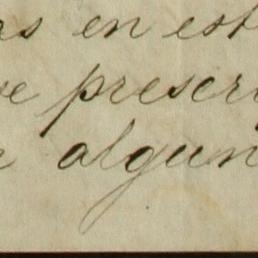 as en est
ve prescri
r algun